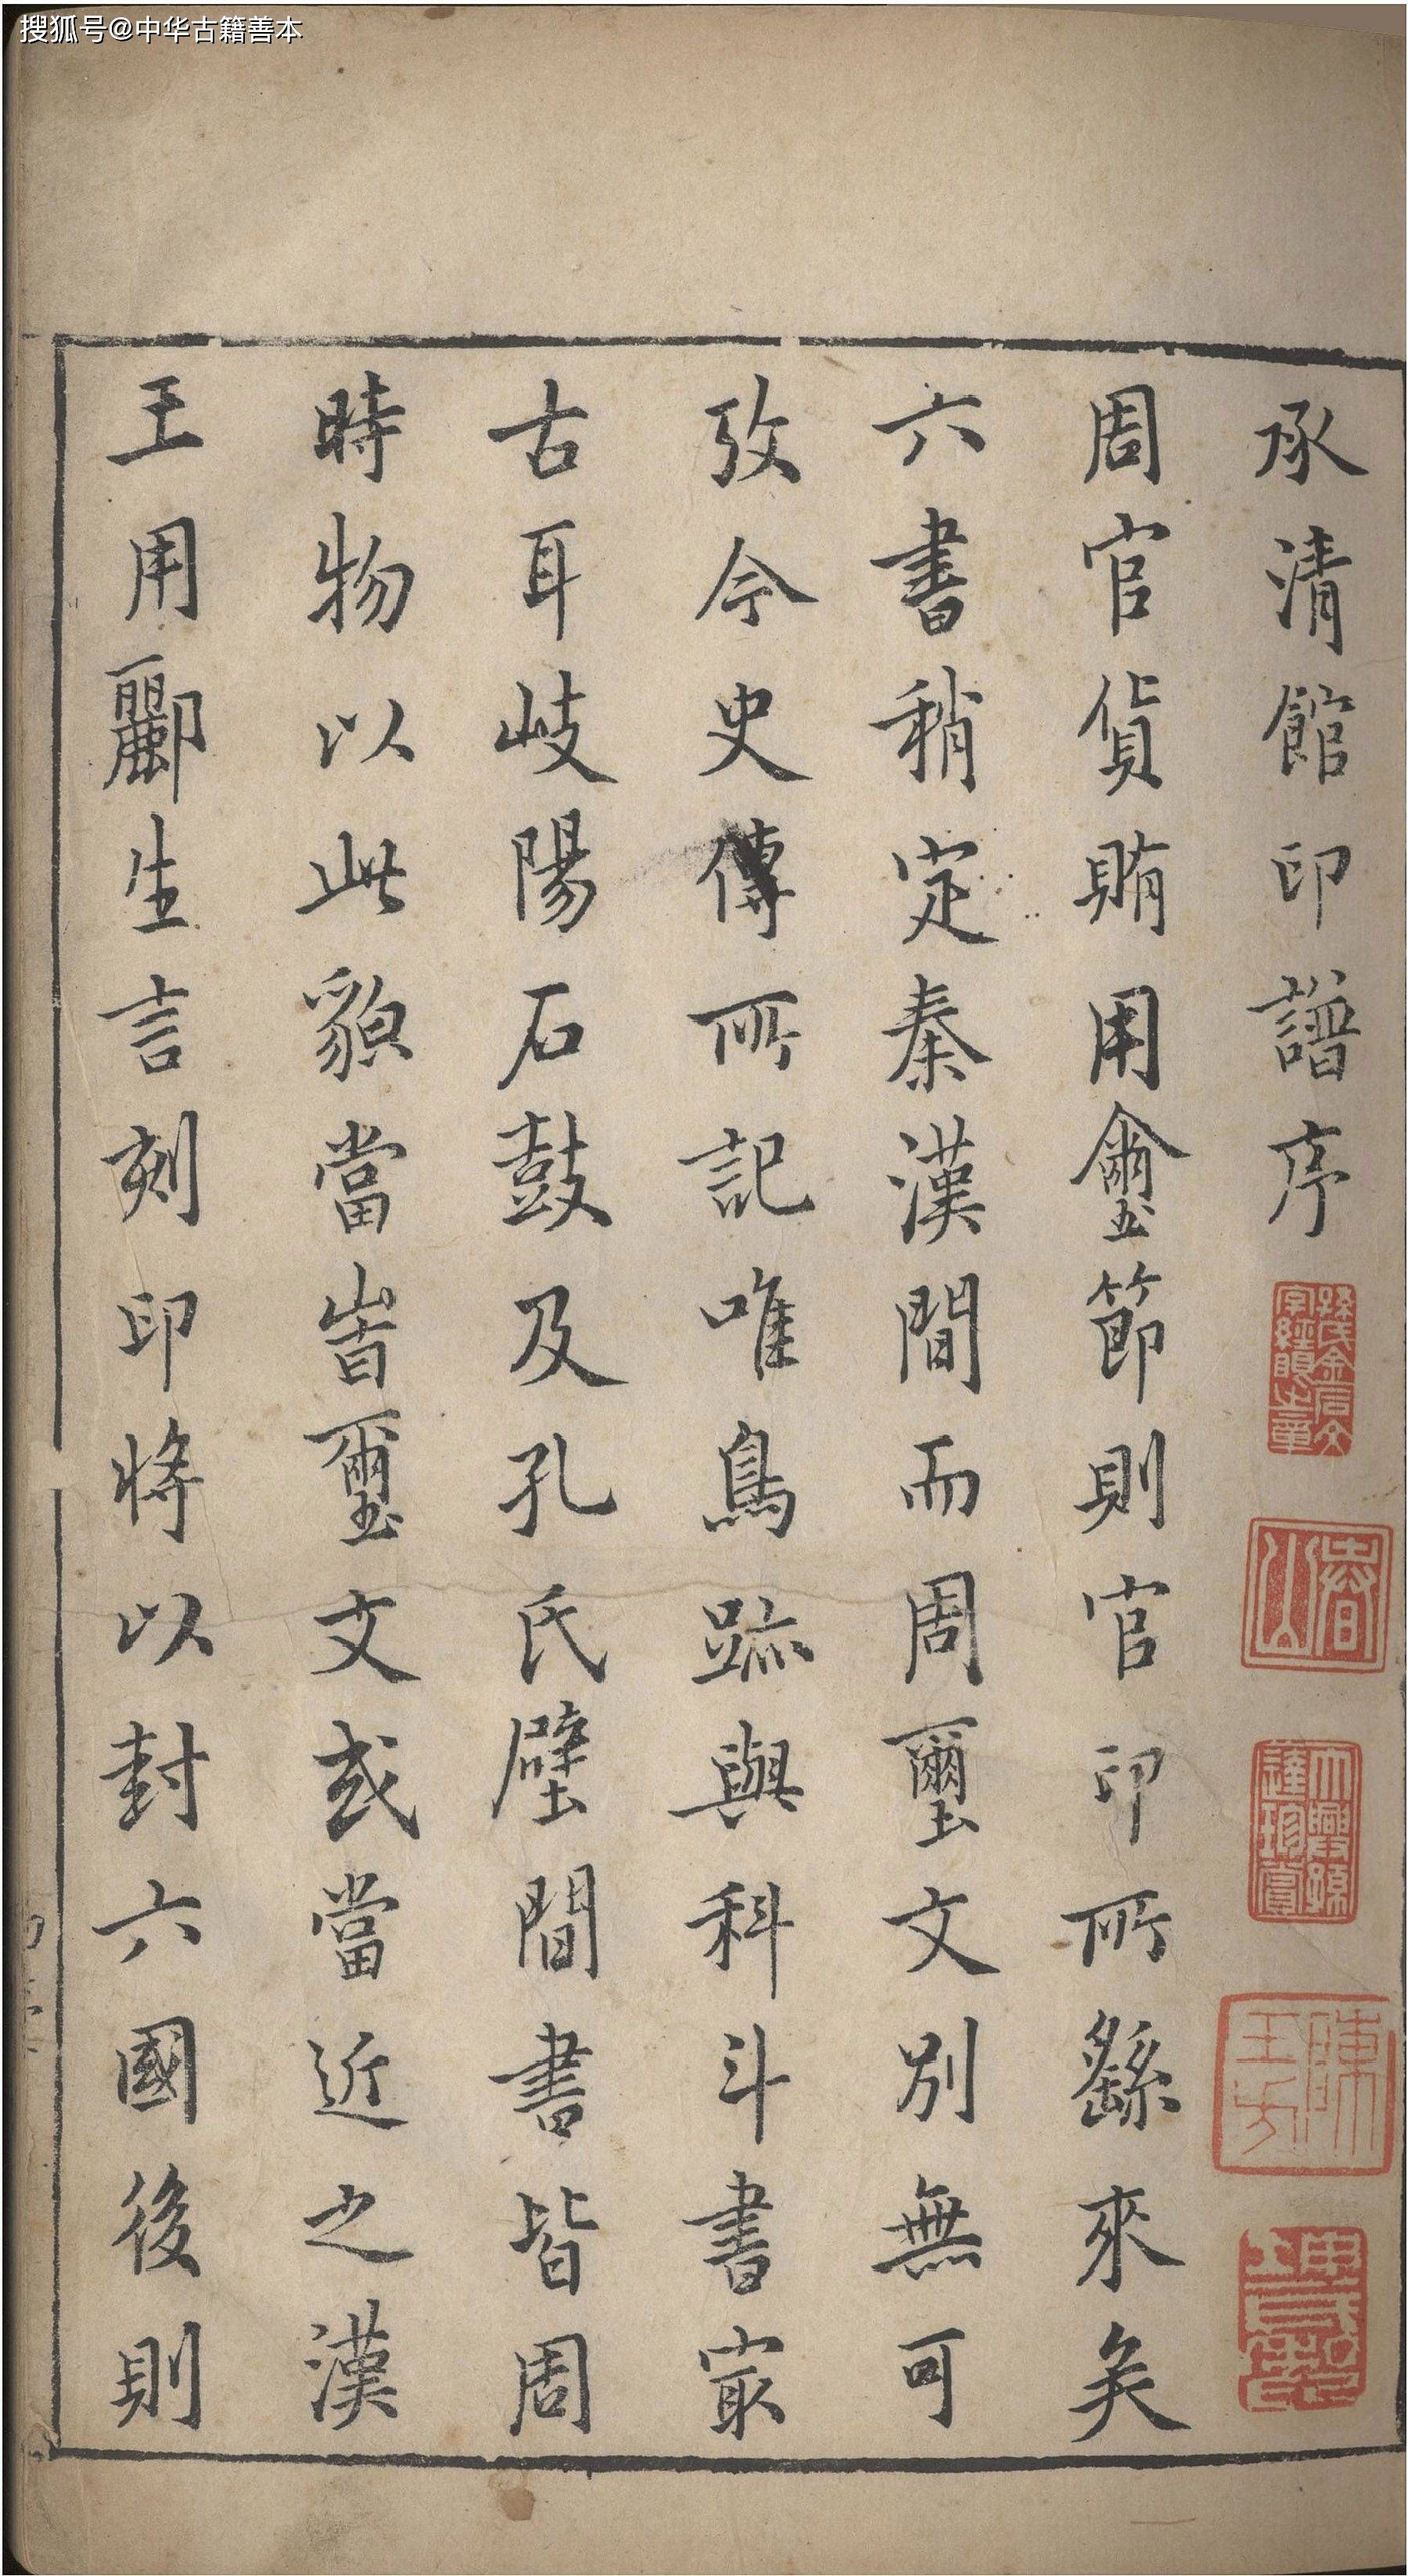 搜狐号@中华古籍善本
承清館印譜序
周官貨賄用璽節則官印所繇來矣
六書稍定秦漢間而周璽文別無可
攷今史傳所記唯鳥跡與科斗書㝡
古耳岐陽石鼓及孔氏壁間書皆周
時物以此貌當旹璽文或當近之漢
王用酈生言刻印將以封六國後則